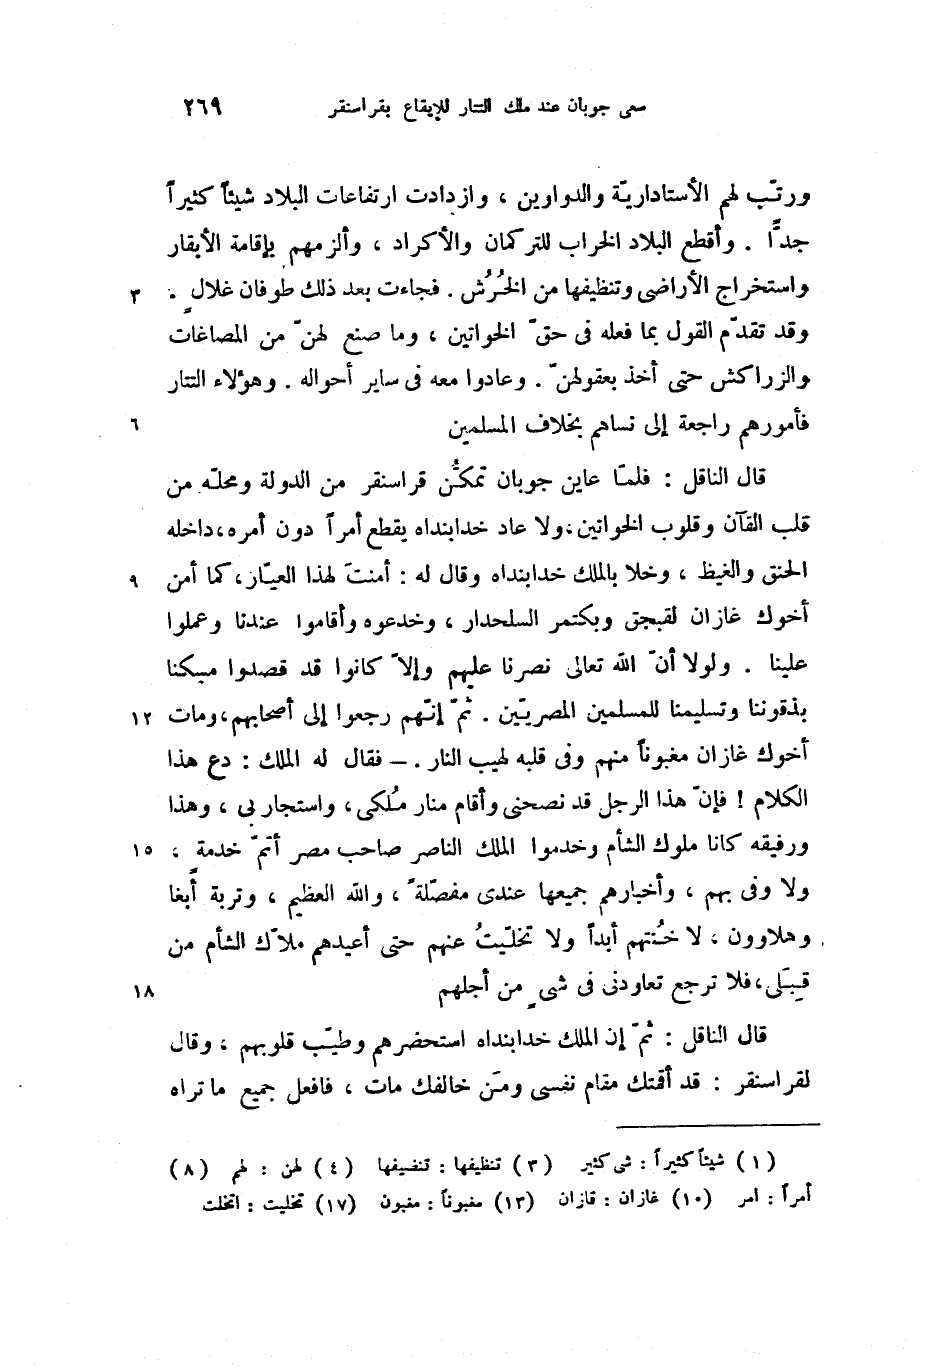 سعى جوبان عند ملك التتار للإيقاع بقراسنقر ٢٦٩
ورتّب لهم الأستاداريّة والدواوين ، وازدادت ارتفاعات البلاد شيئاً كثيراً
جدًّا . وأقطع البلاد الخراب للتركمان والأكراد ، وألزمهم بإقامة الأبقار
واستخراج الأراضى وتنظيفها من الخُرُش . فجاءت بعد ذلك طوفان غلالٍ . ٣
وقد تقدّم القول بما فعله فى حقّ الخواتين ، وما صنع لهنّ من المصاغات
والزراكش حتى أخذ بعقولهنّ . وعادوا معه فى ساير أحواله . وهؤلاء التتار
فأمورهم راجعة إلى نساهم بخلاف المسلمين ٦
قال الناقل : فلمّا عاين جوبان تمكُّن قراسنقر من الدولة ومحلّه من
قلب القآن وقلوب الخواتين ، ولا عاد خدابنداه يقطع أمراً دون أمره ، داخله
الحنق والغيظ ، وخلا بالملك خدابنداه وقال له : أمنتَ لهذا العيّار ، كما أمن ٩
أخوك غازان لقبجق وبكتمر السلحدار ، وخدعوه وأقاموا عندنا وعملوا
علينا . ولولا أنّ الله تعالى نصرنا عليهم وإلاّ كانوا قد قصدوا مسكنا
بذقوننا وتسليمنا للمسلمين المصريّين . ثمّ إنّهم رجعوا إلى أصحابهم ، ومات ١٢
أخوك غازان مغبوناً منهم وفى قلبه لهيب النار . — فقال له الملك : دع هذا
الكلام ! فإنّ هذا الرجل قد نصحنى وأقام منار مُلكى ، واستجار بى ، وهذا
ورفيقه كانا ملوك الشأم وخدموا الملك الناصر صاحب مصر أتمّ خدمةٍ ، ١٥
ولا وفى بهم ، وأخبارهم جميعها عندى مفصّلةً ، والله العظيم ، وتربة أَبغا
وهلاوون ، لا خُنتهم أبداً ولا تخلّيتُ عنهم حتى أعيدهم ملاّك الشأم من
قِبَلى ، فلا ترجع تعاودنى فى شىٍ من أجلهم ١٨
قال الناقل : ثمّ إن الملك خدابنداه استحضرهم وطيّب قلوبهم ، وقال
لقراسنقر : قد أقمتك مقام نفسى ومَن خالفك مات ، فافعل جميع ما تراه
(١) شيئاً كثيراً : شى كثير (٣) تنظيفها : تنضيفها (٤) لهن : لهم (٨)
أمراً : امر (١٠) غازان : قازان (١٣) مغبوناً : مغبون (١٧) تخليت : اتخلت